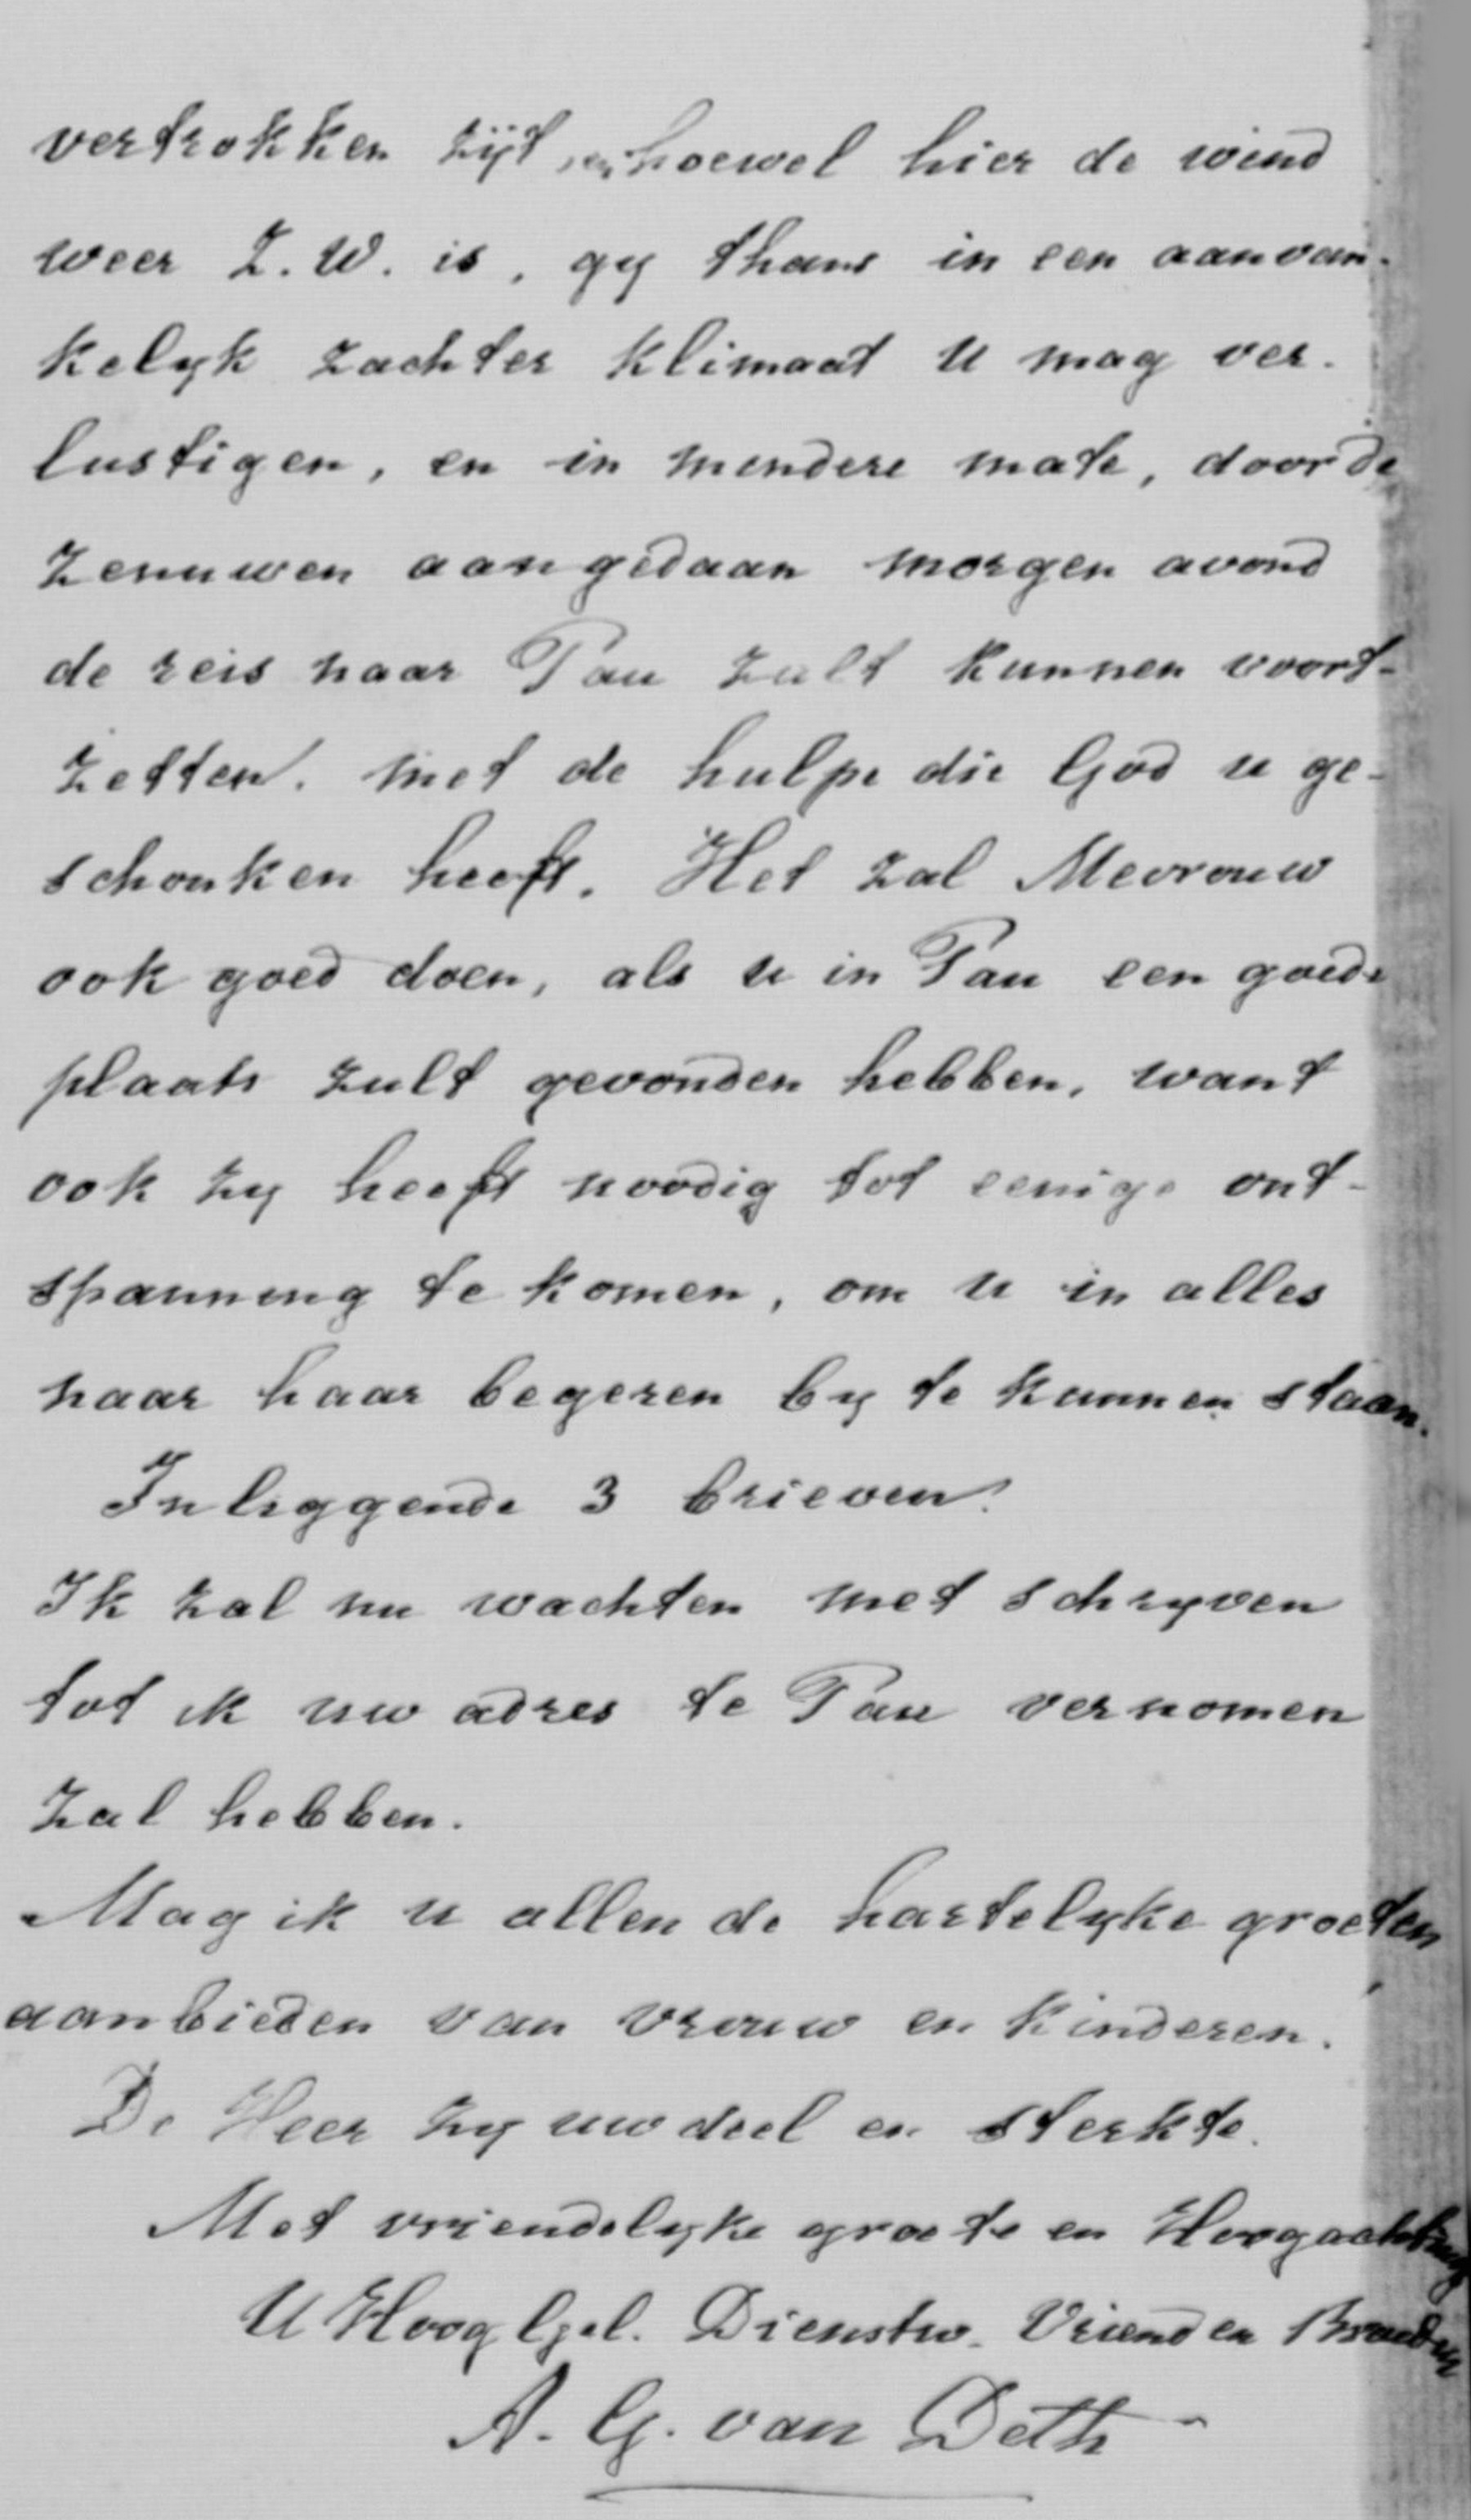 vertrokken zijt en hoewel hier de wind
weer Z.W. is, gy thans in een aanvan-
kelyk zachter klimaat U mag ver-
lustigen, en in mindere mate, door de
zenuwen aangedaan morgen avond
de reis naar Pau zult kunnen voort-
zetten. met de hulpe die God u ge-
schonken heeft. Het zal Mevrouw
ook goed doen, als u in Pau een goede
plaats zult gevonden hebben, want
ook zy heeft noodig tot eenige ont-
spanning te komen, om u in alles
naar haar begeren by te kunnen staan.
Inliggende 3 brieven.
Ik zal nu wachten met schryven
tot ik uw adres te Pau vernomen
zal hebben.
Mag ik u allen de hartelyke groeten
aanbieden van vrouw en kinderen.
De Heer zy uw deel en sterkte.
Met vriendelyke groete en Hoogachting
U HoogGel. Dienstw. Vriend en Broeder
A. G. van Deth